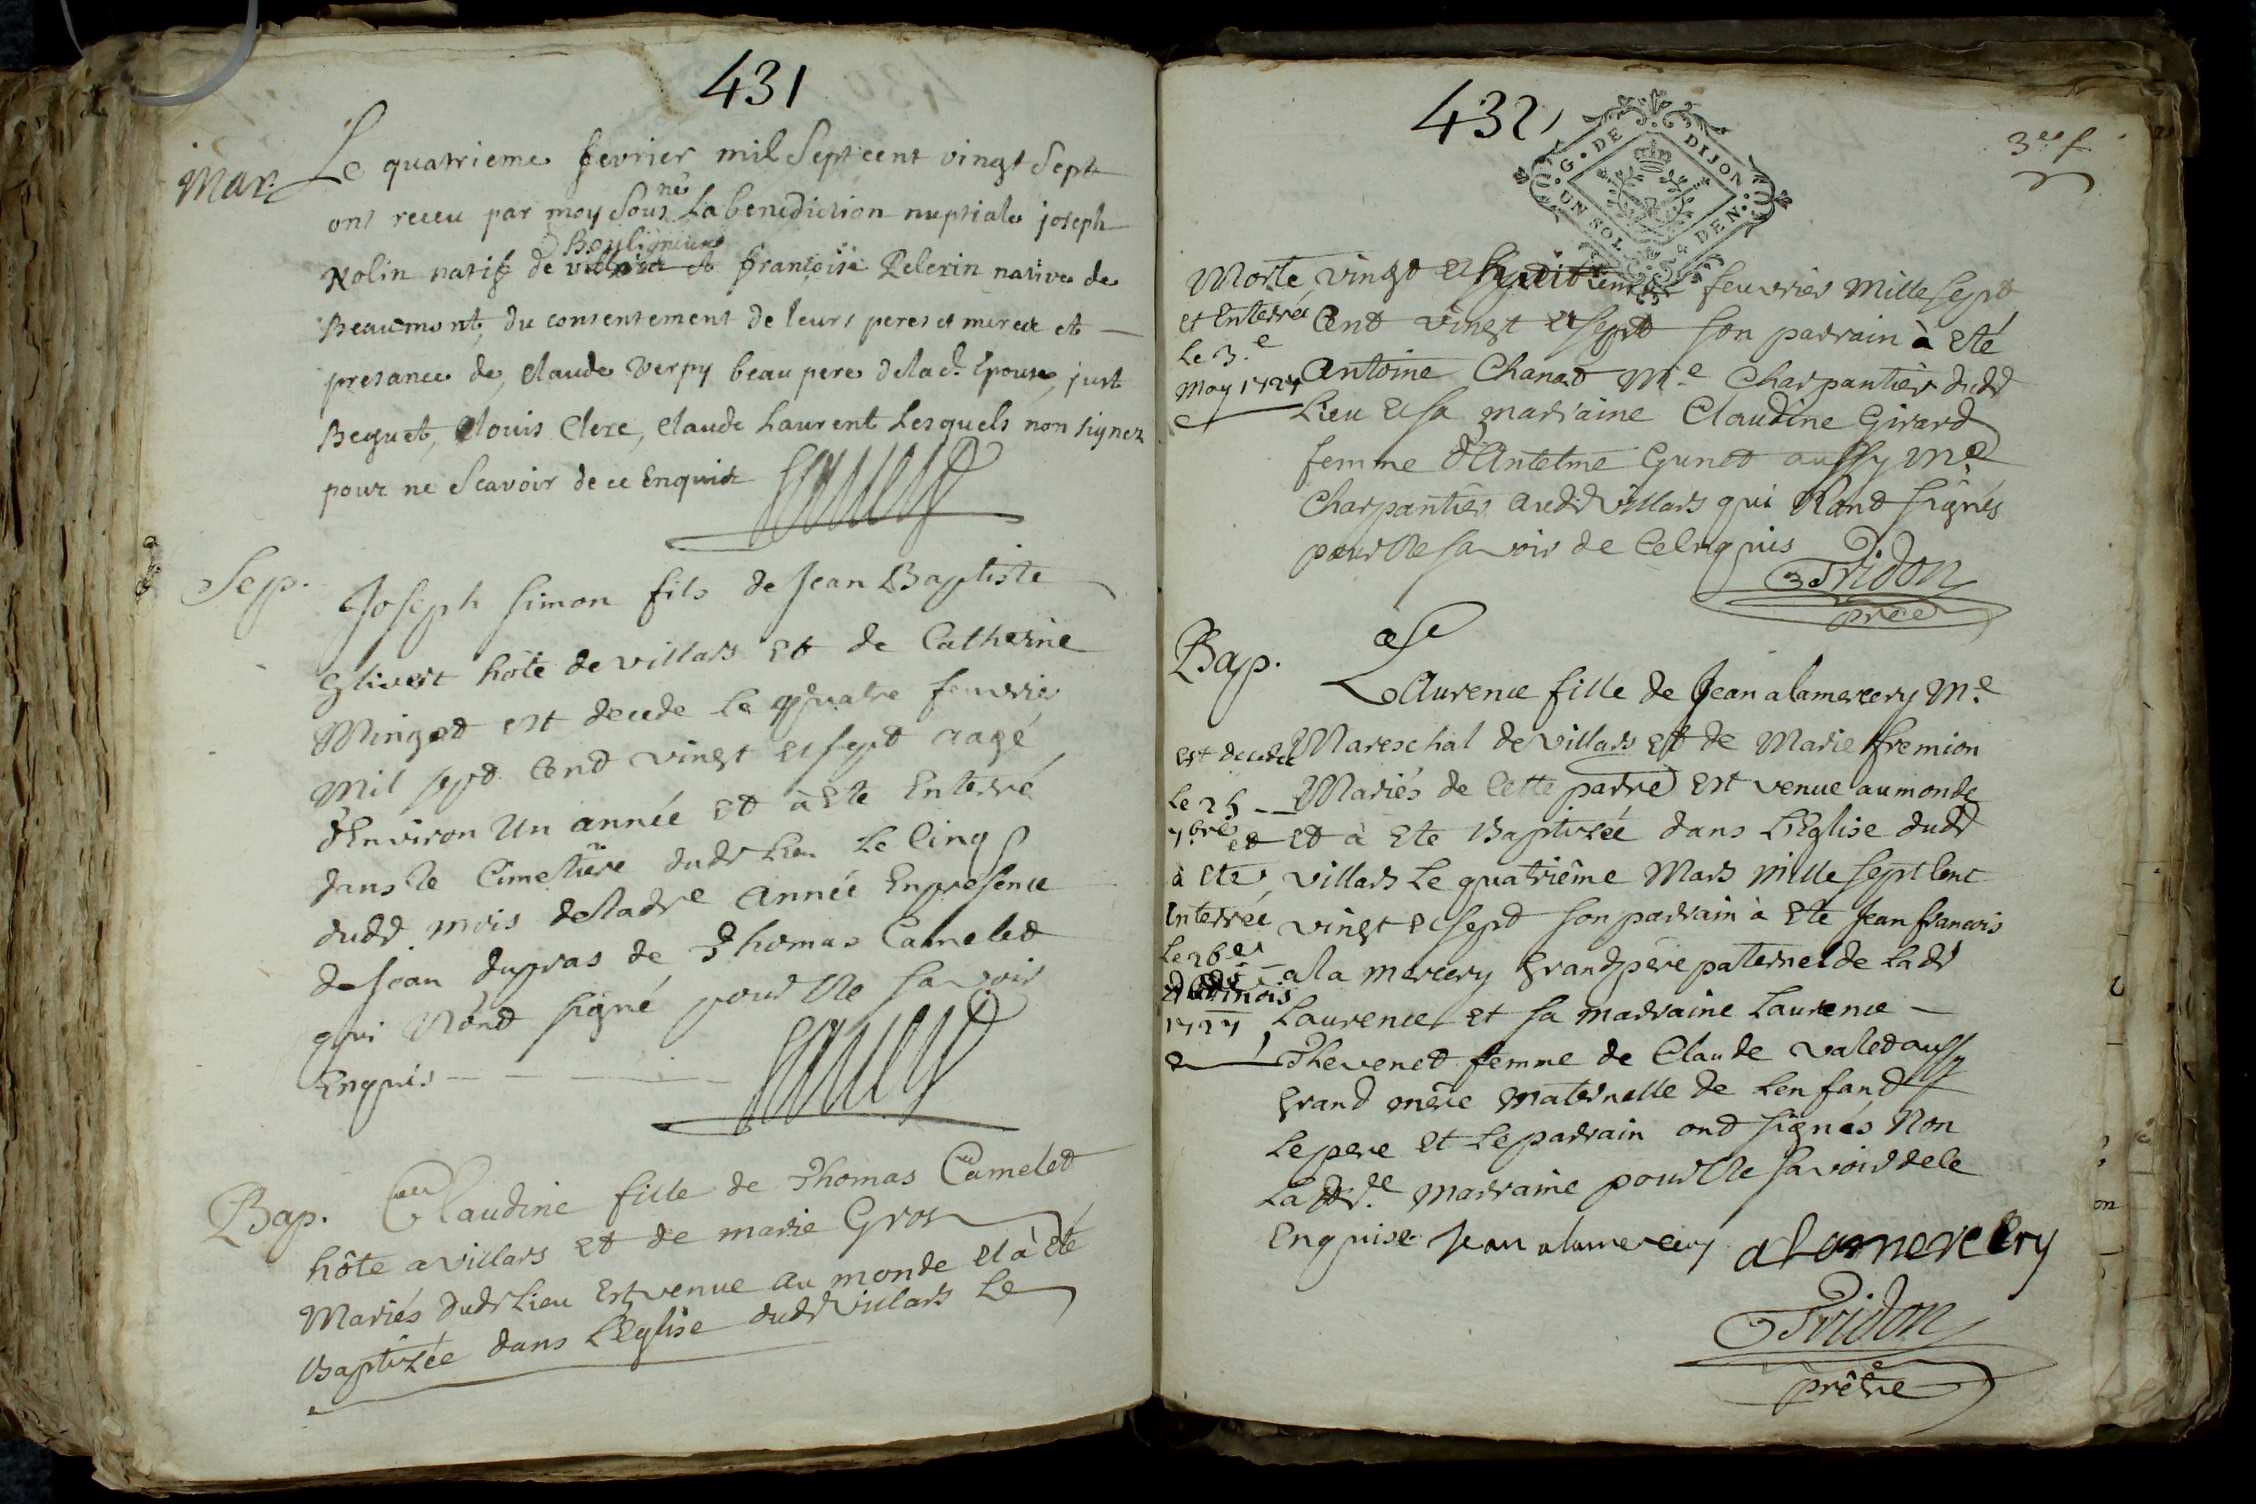 431
Mar.
Le quatrieme fevrier mil Sept cent vingt Sept
ont receu par moy Sousné La benediction nuptiale joseph
Nolin natif de Bouligneux françoise Pelerin native de
Beaumont, du consentement de leurs peres et meres et
presance de, Claude Verpy beau pere de lad. Epouse, just
Beguet, Louis Clere, Claude Laurent Lesquels non signez
pour ne Scavoir de ce Enquis
Sep.
Joseph Simon fils de Jean Baptiste
hôte de villars Et de Catherine
Minget Est decede Le quatre feuvrier
Mil sept Cend vingt et sept aagé
d'Environ Un année Et à Ete Enterré
dans le Cimetiere dudt Lieu Le Cinq
dudt mois de ladte Année En presence
de Jean dupras de Thomas Camelet
qui N'ond signé pour Ne savoir
Enquis
Bap.
Claudine fille de Thomas Camelet
hôte a villars Et de marie Gros
Mariés dudt Lieu Est venue au monde et à Eté
Baptizée dans L'Eglise dudt villars Le
432
G. DE DIJON
UN SOL 4 DEN.
3e f
Morte
et Enterrée
Le 3.e
May 1727
vingt et feuvrier Mille sept
Cend vingt et sept son parrain à Eté
Antoine Chanad Me Charpantier dudt
Lieu et sa marraine Claudine Girard
femme d'Antelme Gunet aussy Me
Charpantier audt Villars qui N'ond signés
pour Ne savoir de Ce Enquis
Pridon
pre
Bap.
Laurence fille de Jean alamercery Me
Mareschal de villars Et de Marie fremion
Mariés de Cette parre Est venue au monde
Et à Ete Baptizée dans L'Eglise dudt
villars Le quatriême Mars Mille sept Cent
vingt et sept son parrain à Ete Jean francois
ala mercery Grand pere paternel de Ladt
Laurence et sa marraine Laurence
Thevenet femme de Claude valet aussy
Grand mère Maternelle de Lenfand
Le pere et Le parrain ond signés Non
La dte marraine pour Ne savoir de Ce
Enquise Jean alamercery alamercery
Est decedée
Le 25
7bre et
à Ete
Enterrée
Le 26e
dudt mois
1727
Pridon
prêtre